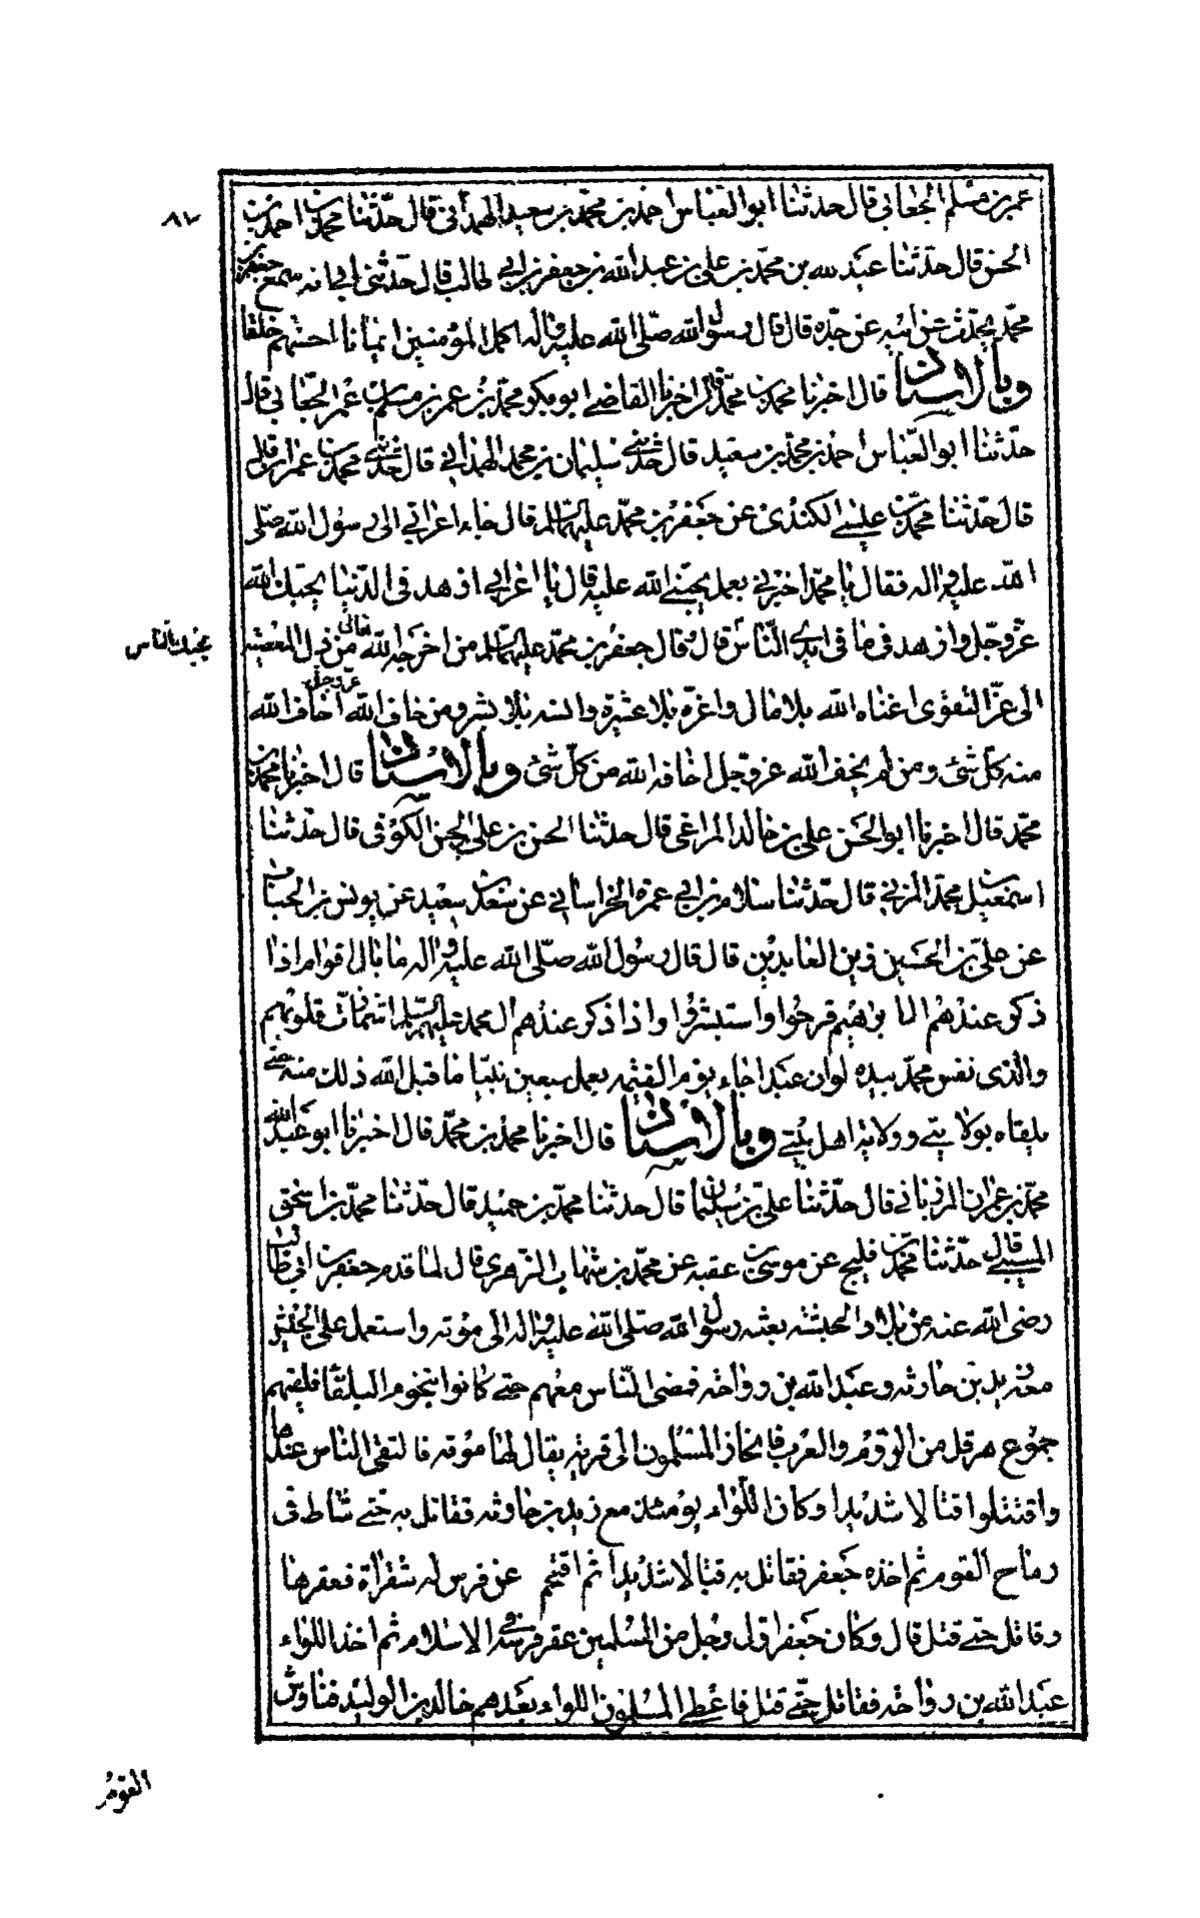 ٨٧
عمر بن مسلم الجعابي قال حدثنا ابو العباس احمد بن محمد بن سعيد الهمداني قال حدثنا محمد بن احمد بن
الحسن قال حدثنا عبيد لله بن محمد بن علي بن عبد الله بن جعفر بن ابي طالب قال حدثني ابي انه سمع جعفر بن
محمد يحدث عن ابيه عن جده قال قال رسول الله صلى الله عليه واله اكمل المؤمنين ايمانا احسنهم خلقا
وبالاسناد قال اخبرنا محمد بن محمد قال اخبرنا القاضي ابو بكر محمد بن عمر بن مسلم بن عمر الجعابي قال
حدثنا ابو العباس احمد بن محمد بن سعيد قال حدثني سليمان بن محمد الهمداني قال حدثني محمد بن عمران قال
قال حدثنا محمد بن عيسى الكندي عن جعفر بن محمد عليهما السلم قال جاء اعرابي الى رسول الله صلى
الله عليه واله فقال يا محمد اخبرني بعمل يحبني الله عليه قال يا اعرابي ازهد في الدنيا يحبك الله
عز وجل وازهد في ما في ايدي الناس قال وقال جعفر بن محمد عليهما السلم من اخرجه الله تعالى من ذل المعصية
يحبك الناس
الى عز التقوى اغناه الله بلا مال واعزه بلا عشيرة وانسه بلا بشر ومن خاف الله عز وجل اخاف الله
منه كل شئ ومن لم يخف الله عز وجل اخافه الله من كل شئ وبالاسناد قال اخبرنا محمد بن
محمد قال اخبرنا ابو الحسن علي بن خالد المراغي قال حدثنا الحسن بن علي الحسن الكوفي قال حدثنا
اسمعيل بن محمد المزني قال حدثنا سلام بن ابي عمرة الخراساني عن سعد بن سعيد عن يونس بن الحباب
عن علي بن الحسين زين العابدين قال قال رسول الله صلى الله عليه واله ما بال اقوام اذا
ذكر عندهم ال ابرهيم فرحوا واستبشروا واذا ذكر عندهم ال محمد عليهم السلم اشمأزت قلوبهم
والذي نفس محمد بيده لو ان عبدا جاء يوم القيمة بعمل سبعين نبيا ما قبل الله ذلك منه حتى
يلقاه بولايتي وولاية اهل بيتي وبالاسناد قال اخبرنا محمد بن محمد قال اخبرنا ابو عبد الله
محمد بن عمران المرزباني قال حدثنا علي بن سليمان قال حدثنا محمد بن حميد قال حدثنا محمد بن اسحق
المسيبي قال حدثنا محمد بن فليح عن موسى بن عقبه عن محمد بن شهاب الزهري قال لما قدم جعفر بن ابي طالب
رضى الله عنه من بلاد الحبشه بعثه رسول الله صلى الله عليه واله الى موته واستعمل على الجيش
معه زيد بن حارثه وعبد الله بن رواحه فمضى الناس معهم حتى كانوا بتخوم البلقا فلقيهم
جموع هرقل من الروم والعرب فانحاز المسلمون الى قرية يقال لها موته فالتقى الناس عندها
واقتتلوا قتالا شديدا وكان اللواء يومئذ مع زيد بن حارثه فقاتل به حتى شاط في
رماح القوم ثم اخذه جعفر فقاتل به قتالا شديدا ثم اقتحم عن فرس له شقراة فعقرها
وقاتل حتى قتل قال وكان جعفر اول رجل من المسلمين عقر فرسه في الاسلام ثم اخذ اللواء
عبد الله بن رواحه فقاتل حتى قتل فاعطى المسلمون اللواء بعدهم خالد بن الوليد فناوش
القوم